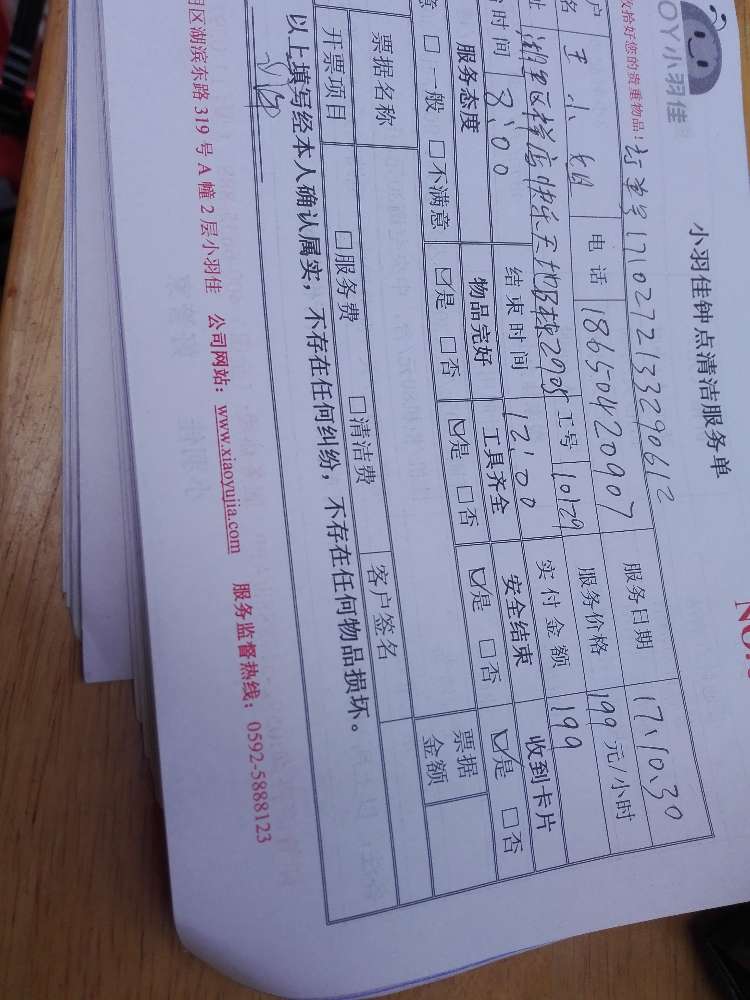 OY小羽佳
小羽佳钟点清洁服务单
收拾好您的贵重物品!
订单号1710272133290612
服务日期 17.10.30
户名 王小姐 电话 18650420907 服务价格 199 元/小时
址 湖里区祥店快乐天地B栋2905 工号 10129 实付金额 199
时间 8:00 结束时间 12:00
服务态度 物品完好 工具齐全 安全结束 收到卡片
意 □一般 □不满意 ☑是 □否 ☑是 □否 ☑是 □否 ☑是 □否
票据名称 票据金额
开票项目 □服务费 □清洁费 客户签名
以上填写经本人确认属实，不存在任何纠纷，不存在任何物品损坏。
明区湖滨东路 319 号 A 幢 2 层小羽佳 公司网站：www.xiaoyujia.com 服务监督热线：0592-5888123